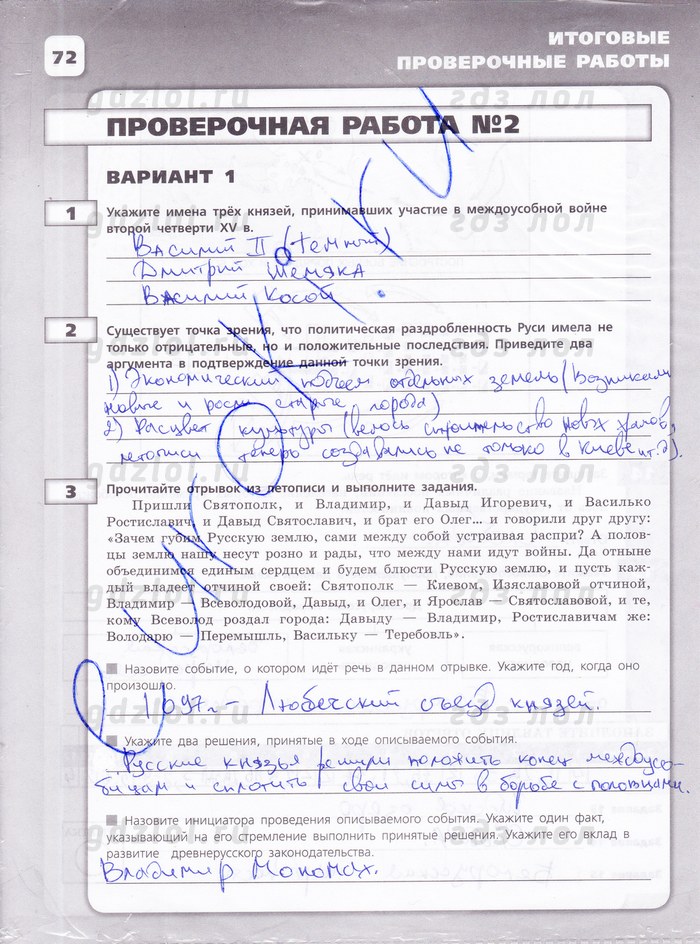 72
ИТОГОВЫЕ
ПРОВЕРОЧНЫЕ РАБОТЫ
gdzlol.ru гдз лол
ПРОВЕРОЧНАЯ РАБОТА №2
ВАРИАНТ 1
1 Укажите имена трёх князей, принимавших участие в междоусобной войне
второй четверти XV в.
Василий II (темный)
Дмитрий Шемяка
Василий Косой
2 Существует точка зрения, что политическая раздробленность Руси имела не
только отрицательные, но и положительные последствия. Приведите два
аргумента в подтверждение данной точки зрения.
1) Экономический подъем отдельных земель (возникали
новые и росли старые города)
2) Расцвет культуры (велось строительство новых храмов,
летописи теперь создавались не только в Киеве и т.д).
3 Прочитайте отрывок из летописи и выполните задания.
Пришли Святополк, и Владимир, и Давыд Игоревич, и Василько
Ростиславич, и Давыд Святославич, и брат его Олег... и говорили друг другу:
«Зачем губим Русскую землю, сами между собой устраивая распри? А полов-
цы землю нашу несут розно и рады, что между нами идут войны. Да отныне
объединимся единым сердцем и будем блюсти Русскую землю, и пусть каж-
дый владеет отчиной своей: Святополк — Киевом, Изяславовой отчиной,
Владимир — Всеволодовой, Давыд, и Олег, и Ярослав — Святославовой, и те,
кому Всеволод роздал города: Давыду — Владимир, Ростиславичам же:
Володарю — Перемышль, Васильку — Теребовль».
Назовите событие, о котором идёт речь в данном отрывке. Укажите год, когда оно
произошло.
1097г. - Любечский съезд князей.
Укажите два решения, принятые в ходе описываемого события.
Русские князья решили положить конец междоусо-
бицам и сплотить свои силы в борьбе с половцами.
Назовите инициатора проведения описываемого события. Укажите один факт,
указывающий на его стремление выполнить принятые решения. Укажите его вклад в
развитие древнерусского законодательства.
Владимир Мономах.